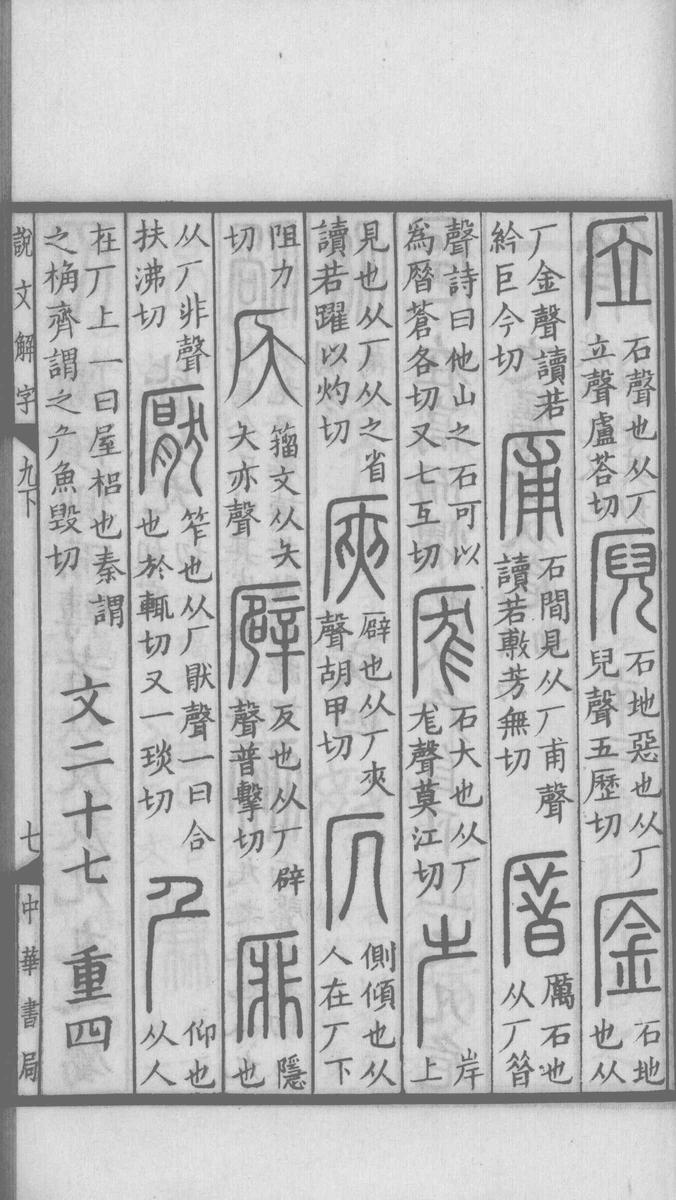 㕇石聲也从厂立聲盧荅切㕒石地惡也从厂兒聲五歷切㕋石地也从
厂金聲讀若紟巨今切㕊石間見从厂甫聲讀若敷芳無切厝厲石也从厂㫺
聲詩曰他山之石可以爲厝蒼各切又七互切厖石大也从厂尨聲莫江切岸上
見也从厂从之省讀若躍以灼切㕉辟也从厂夾聲胡甲切仄側傾也从人在厂下
阻力切籒文从夨夨亦聲𠪮仄也从厂辟聲普擊切厞隱也
从厂非聲扶沸切厭笮也从厂猒聲一曰合也於輒切又一琰切厃仰也从人
在厂上一曰屋梠也秦謂之桷齊謂之厃魚毀切文二十七 重四
說文解字 九下 七 中華書局